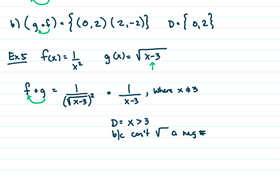 b) (g∘f) = {(0,2)(2,-2)}   D = {0,2}
Ex 5   f(x) = 1/x²   g(x) = √(x-3)
f∘g = 1/(√(x-3))² = 1/(x-3), where x ≠ 3
D = x > 3
b/c can't √ a neg #